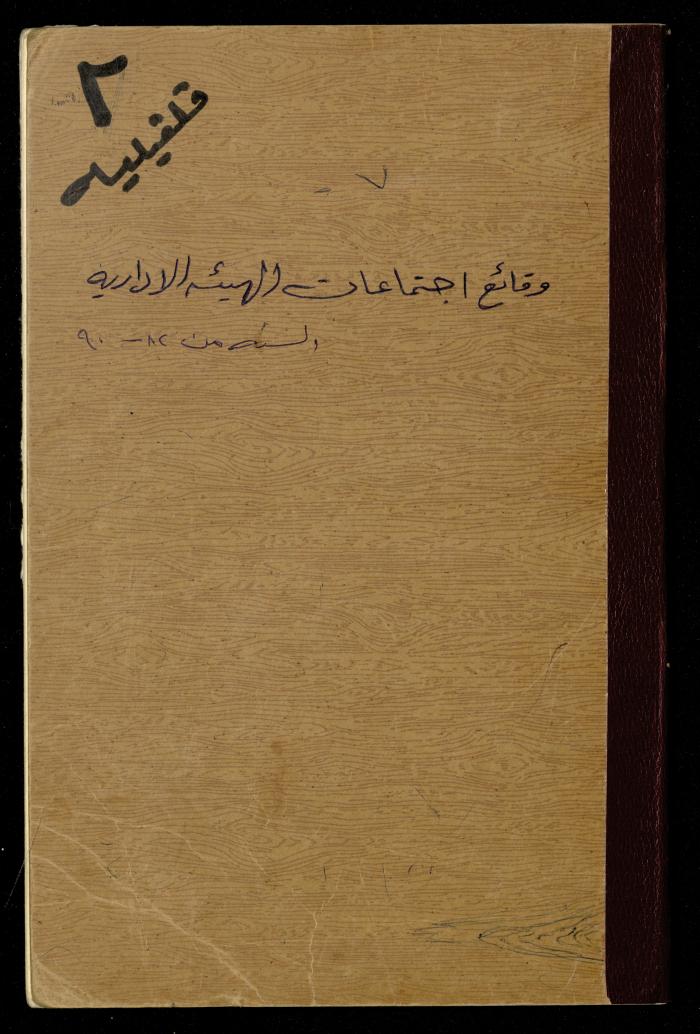 ٢
قلقيليه
وقائع اجتماعات الهيئه الاداريه
السنه من ٨٢ - ٩٠